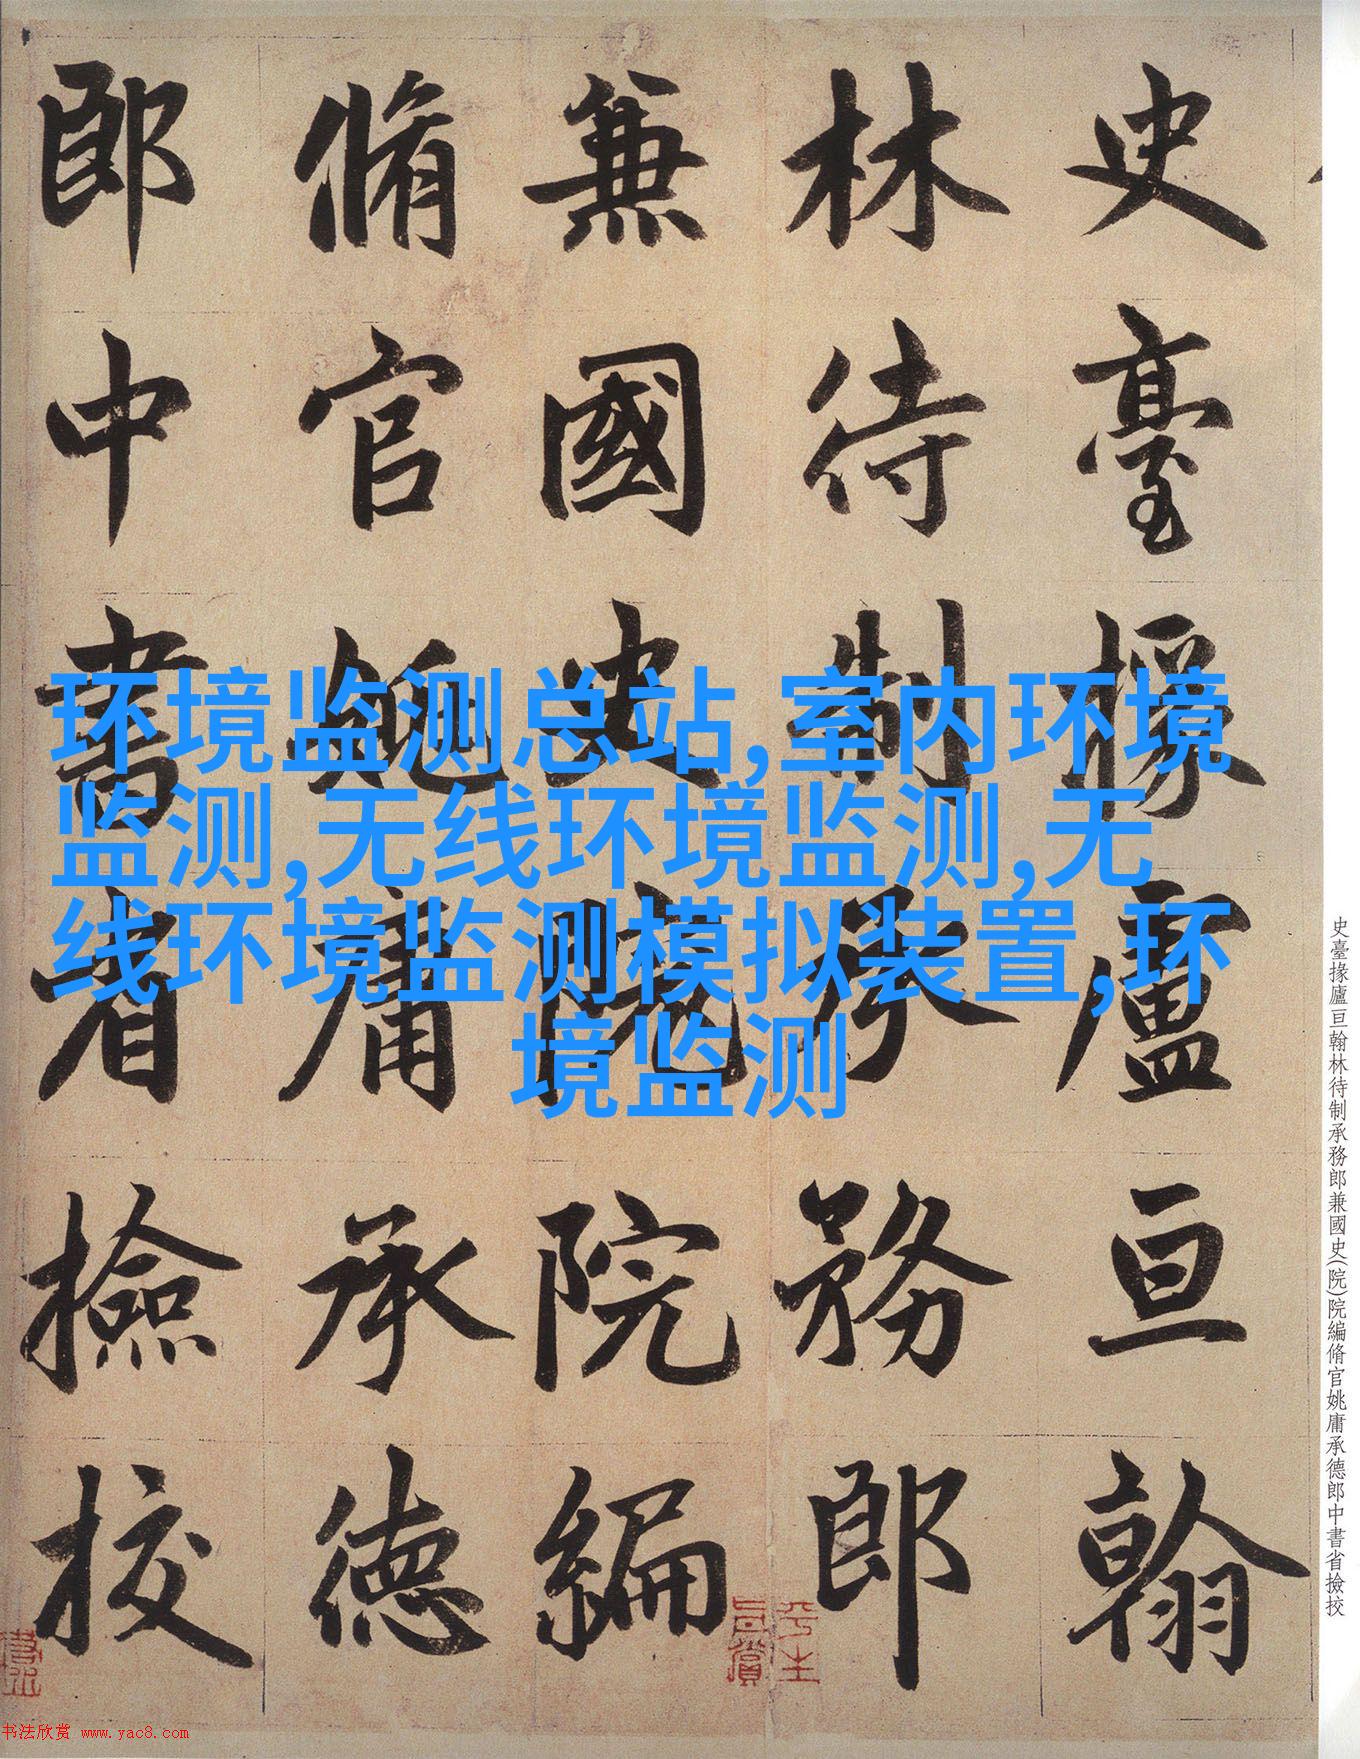 史臺掾盧亘翰
林待制承務郎
兼國史院院編
脩官姚庸承德
郎中書省撿挍
环境监测总站,室内环境
监测,无线环境监测,无
线环境监测模拟装置,环
境监测
史臺掾廬亘翰林待制承務郎兼國史(院)院編脩官姚庸承德郎中書省撿挍
平生
书法欣赏 www.yac8.com